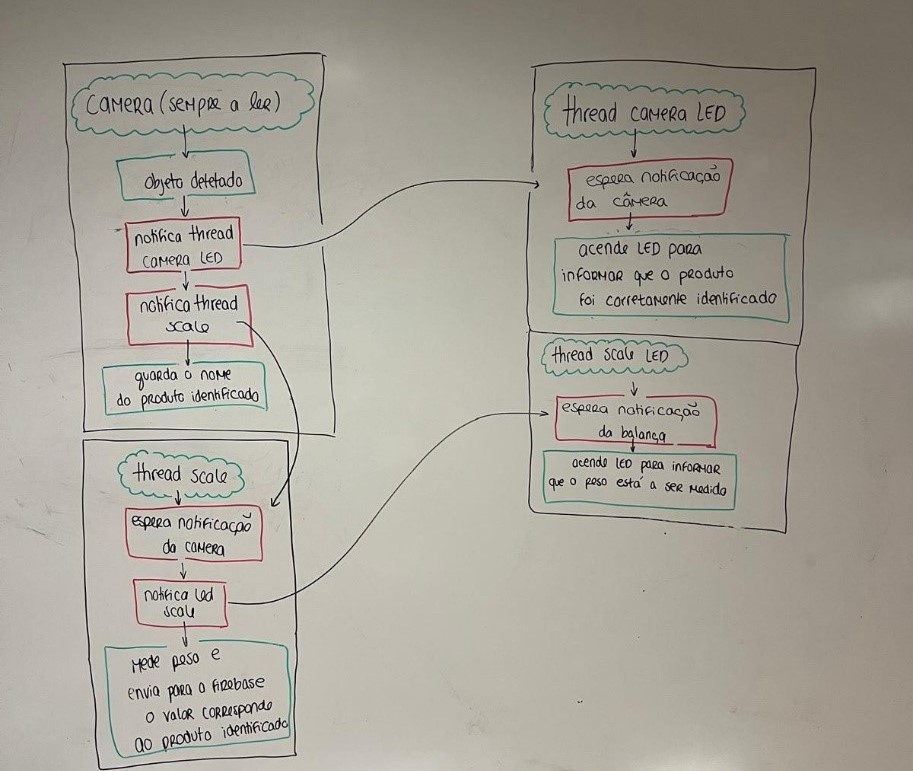 CAMERA (SEMPRE A LER)
objeto detetado
notifica thread
CAMERA LED
notifica thread
scale
guarda o nome
do produto identificado
thread scale
espera notificação
da CAMERA
notifica led
scale
Mede peso e
envia para o firebase
o valor correspondo
ao produto identificado
thread CAMERA LED
espera notificação
da CÂMERA
acende LED para
informar que o produto
foi corretamente identificado
thread scale LED
espera notificação
da balança
acende LED para informar
que o peso está a ser medido